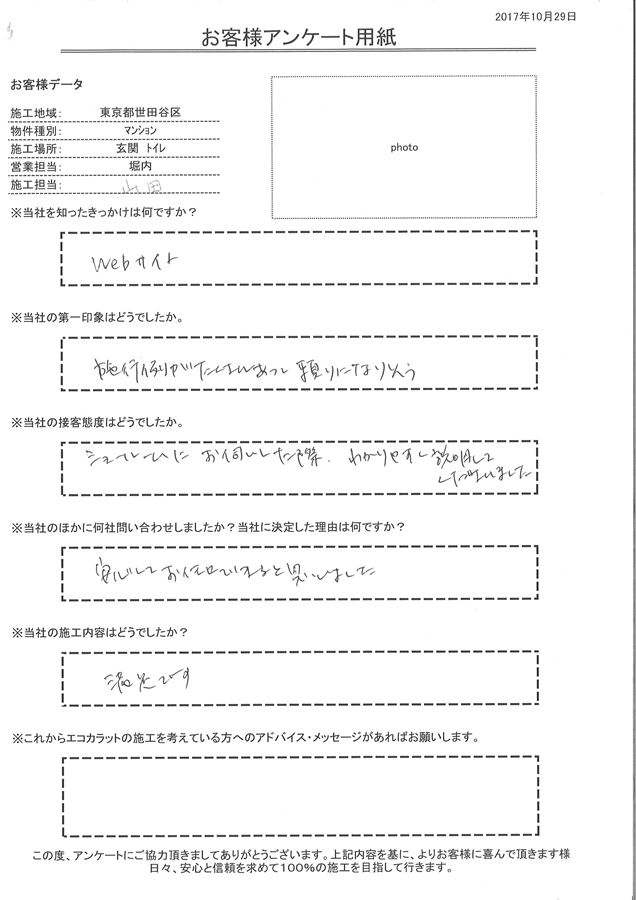 2017年10月29日
お客様アンケート用紙
お客様データ
施工地域： 東京都世田谷区
物件種別： マンション
施工場所： 玄関 トイレ
営業担当： 堀内
施工担当： 山田
photo
※当社を知ったきっかけは何ですか？
Webサイト
※当社の第一印象はどうでしたか。
施行例がたくさんあって頼りになりそう
※当社の接客態度はどうでしたか。
ショールームに お伺いした際、わかりやすい説明して
下さいました
※当社のほかに何社問い合わせしましたか？当社に決定した理由は何ですか？
安心してお任せできると思いました
※当社の施工内容はどうでしたか？
満足です
※これからエコカラットの施工を考えている方へのアドバイス・メッセージがあればお願いします。
この度、アンケートにご協力頂きましてありがとうございます。上記内容を基に、よりお客様に喜んで頂きます様
日々、安心と信頼を求めて100％の施工を目指して行きます。